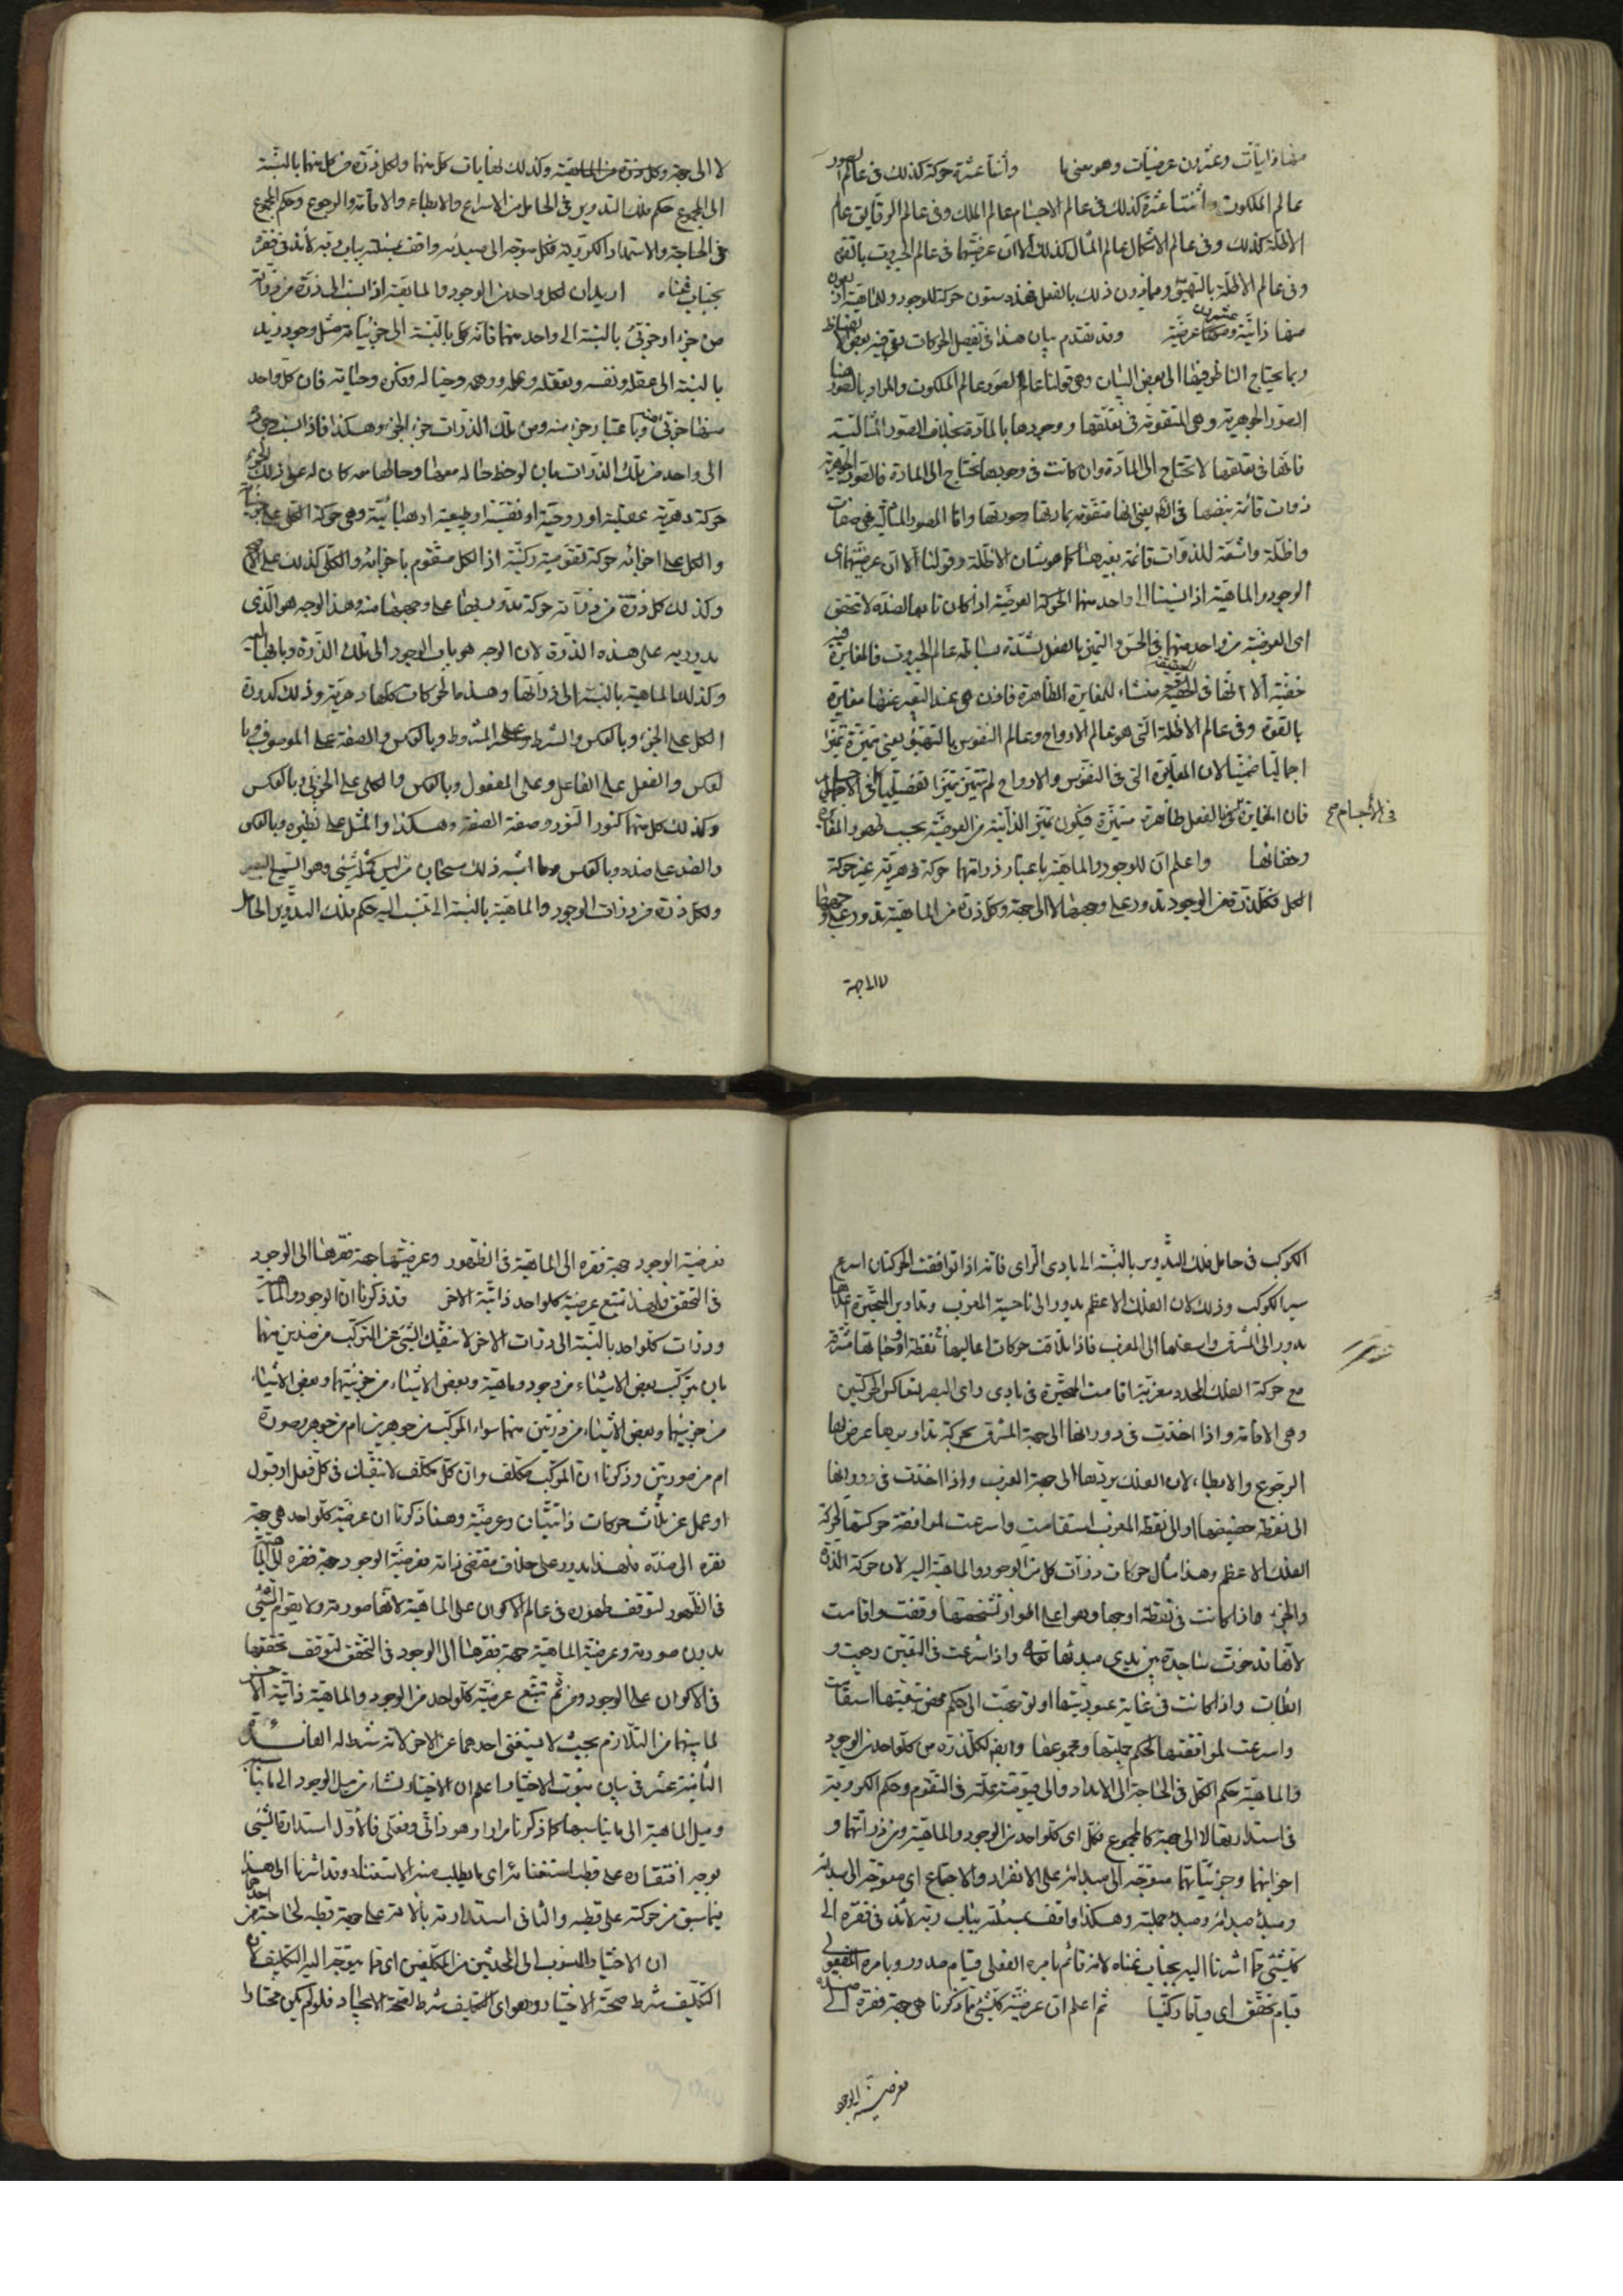 منها ذاتيات وعشرون عرضيات وهو معنى ما واثنتا عشرة حركة كذلك فى عالم الصور
عالم الملكوت واثنتا عشرة كذلك فى عالم الاجسام عالم الملك وفى عالم الرقايق عالم
الاظلة كذلك وفى عالم الاشكال عالم المثال كذلك الا ان عرضيتهما فى عالم الجبروت بالقوة
وفى عالم الاظلة بالتهيؤ وما دون ذلك بالفعل فهذه ستون حركة للوجود وللماهية اربعون
منها ذاتية وعشرون منها عرضية وقد تقدم بيان هذا فى تفصيل الحركات بقى فيه بعض الفاظ
ربما يحتاج الناظر فيها الى بعض البيان وهى قولنا عالم الصور عالم الملكوت والمراد بالصور هنا
الصور الجوهرية وهى المتقومة فى تعلقها ووجودها بالمادة بخلاف الصور المثالية
فانها فى تعلقها لا تحتاج الى المادة وان كانت فى وجودها تحتاج الى المادة فالصور الجوهرية
ذوات قائمة بنفسها يعنى انها متقومة بمادتها وصورتها واما الصور المثالية فهى صفات
واظلة واشعة للذوات قائمة بغيرها كما هو شان الاظلة وقولنا الا ان عرضيتهما اى
الوجود والماهية اذا نسبنا الى واحد منهما الحركة العرضية اذا كان تابعا لضده لا تتحقق
اى العرضية من واحد منهما فى الحس والتميز بالفعل لشدة بساطة عالم الجبروت فالمغايرة فيه
خفية الا انها فى الحقيقة منشاء للمغايرة الظاهرة فاذن هى عند التعبير عنها مغايرة
بالقوة وفى عالم الاظلة التى هو عالم الارواح وعالم النفوس بالتهيؤ يعنى متميزة تميزا
اجماليا ضمنيا لان المغايرة التى فى النفوس والارواح لم تتميز تميزا تفصيليا
فى الاجسام صح
فان المغايرة بالفعل ظاهرة متميزة فيكون تميز الذاتية من العرضية بحسب ظهور المغايرة
وخفائها واعلم ان للوجود والماهية باعتبار ذراتهما حركة دهرية غير حركة
الكل فكل ذرة من الوجود تدور على وجهها لا الى جهة وكل ذرة من الماهية تدور على وجهها
لا الى جهة
لا الى جهة وكل ذرة من الماهية وكذلك لغايات كل منهما ولكل ذرة من كل منهما بالنسبة
الى المجموع حكم فلك التدوير فى الحامل من الاسراع والابطاء والاقامة والرجوع وحكم المجموع
فى الحاجة والاستمداد الكروية فكل متوجه الى مبدئه واقف بمسئلته بباب ربه لائذ فى فقره
بجناب غناه اريد ان لكل واحد من الوجود والماهية اذا نسب الى ذرة من ذراته
من جزء او جزئى بالنسبة الى واحد منهما فانه كلى بالنسبة الى جزئياته مثل وجود زيد
بالنسبة الى عقله ونفسه وتعقله وعلمه ووهمه وخياله وفكره وحياته فان كل واحد
منها جزئى منه وباعتبار جزء منه ومن تلك الذرات جزء الجزء وهكذا فاذا نسب جزء
الى واحد من تلك الذرات بان لوحظ حاله معها وحالها معه كان له على ذلك الجزء
حركة دهرية عقلية او روحية او نفسية او طبيعية او هبائية وهى حركة الكلى على جزئياته
والكل على اجزائه حركة تقومية ركنية اذ الكل متقوم باجزائه والكلى كذلك على الاصح
وكذلك كل ذرة من ذراته حركة تدور بها على وجهها منه وهذا الوجه هو الذى
يدور به على هذه الذرة لان الوجه هو باب الوجود الى تلك الذرة وبابها اليه
وكذلك الماهية بالنسبة الى ذراتها وهذه الحركات كلها دهرية وذلك كدورة
الكل على الجزء وبالعكس والشرط على المشروط وبالعكس والصفة على الموصوف وبا
لعكس والفعل على الفاعل وعلى المفعول وبالعكس والكلى على الجزئى وبالعكس
وكذلك كل منهما كنور النور وصفة الصفة وهكذا والمثل على نظيره وبالعكس
والضد على ضده وبالعكس وما اشبه ذلك سبحان من ليس كمثله شئ وهو السميع البصير
ولكل ذرة من ذرات الوجود والماهية بالنسبة الى ما تنسب اليه حكم فلك التدوير الحامل
الكوكب فى حامل فلك التدوير بالنسبة الى بادى الراى فانه اذا توافقت الحركتان اسرع
سير الكوكب وذلك لان الفلك الاعظم يدور الى ناحية المغرب وتداوير المتحيرة اعلاها
يدور الى المشرق واسفلها الى المغرب فاذا تلاقت حركات اعاليها فى نقطة اوجاتها مشرقة
مع حركة الفلك المحدد مغربة اقامت المتحيرة فى بادى راى البصر لتعاكس الحركتين
وهى الاقامة واذا اخذت فى دورانها الى جهة المشرق بحركة تداويرها عرض لها
الرجوع والابطاء لان الفلك يردها الى جهة المغرب واذا اخذت فى دورانها
الى نقطة حضيضها او الى نقطة المغرب استقامت واسرعت لموافقة حركتها لحركة
الفلك الاعظم وهذا مثال حركات ذرات كل من الوجود والماهية اليه لان حركة الذرة
والجزء واذا كانت فى نقطة اوجها وهو اعلى اطوار تشخصها وقفت واقامت
لانها قد خرت ساجدة بين يدى مبدئها واذا شرعت فى التعين رجعت و
ابطات واذا كانت فى غاية عبوديتها او توجهت الى حكم محض تبعيتها استقامت
واسرعت لموافقتها لحكم جملتها ومجموعها وايضا لكل ذرة من كل واحد من الوجود
والماهية حكم الكل فى الحاجة الى الامداد والى قيومية علته فى التقوم وحكم الكروية
فى استدارتها لا الى جهة كالمجموع فكل اى كل واحد من الوجود والماهية ومن ذراتهما و
اجزائهما وجزئياتهما متوجه الى مبدائه على الانفراد والاجتماع اى متوجه الى مبدئه
ومبدء مبدائه ومبدء جملته وهكذا واقف بمسئلته بباب ربه لائذ فى فقره الى
كل شئ مما اشرنا اليه بجناب غناه لانه قائم بامره الفعلى قيام صدور وبامره المفعولى
قيام تحقق اى قياما ركنيا ثم اعلم ان عرضية كل شئ مما ذكرنا هى جهة فقره الى ضده
فعرضية الوجود
فعرضية الوجود جهة فقره الى الماهية فى الظهور وعرضيتها جهة فقرها الى الوجود
فى التحقق فلهذا تتبع عرضية كل واحد ذاتية الاخر وقد ذكرنا ان الوجود والماهية
وذرات كل واحد بالنسبة الى ذرات الاخر لا ينفك الشئ عن التركب من ضدين منهما
بان يتركب بعض الاشياء من وجود وماهية وبعض الاشياء من جزئيتهما وبعض الاشياء
من جزئيهما وبعض الاشياء من ذرتين منهما سواء المركب من جوهرين ام من جوهر وصورة
ام من صورتين وذكرنا ان المركب مكلف وان كل مكلف لا ينفك فى كل فعل او قول
او عمل عن ثلاث حركات ذاتيتان وعرضية وهنا ذكرنا ان عرضية كل واحد هى جهة
فقره الى ضده فلهذا يدور على خلاف مقتضى ذاته فعرضية الوجود جهة فقره الى الماهية
فى الظهور لتوقف ظهوره فى عالم الاكوان على الماهية لانها صورته ولا يتقوم الشئ
بدون صورته وعرضية الماهية جهة فقرها الى الوجود فى التحقق لتوقف تحققها
فى الاكوان على الوجود ومن ثم تتبع عرضية كل واحد من الوجود والماهية ذاتية الاخر
لما بينهما من التلازم بحيث لا يستغنى احدهما عن الاخر لانه شرط له الفائدة
الثانية عشر فى بيان ثبوت الاختيار اعلم ان الاختيار نشاء من ميل الوجود الى ما يناسبه
وميل الماهية الى ما يناسبها كما ذكرنا مرارا وهو ذاتى وفعلى فالاول استدارة الشئ
بوجه افتقاره على قطب استغنائه اى ما يطلب منه الاستغناء وقد اشرنا الى هذا
فيما سبق من حركته على قطبه والثانى استدارته بالاته على جهة قطبه لحاجته من
ان الاختيار المنسوب الى المحدثين من المكلفين اى ما يتوجه اليه التكليف لان
التكليف شرط صحة الاختيار وهو اى التكليف شرط لصحة الايجاد فلو لم يكن مختارا